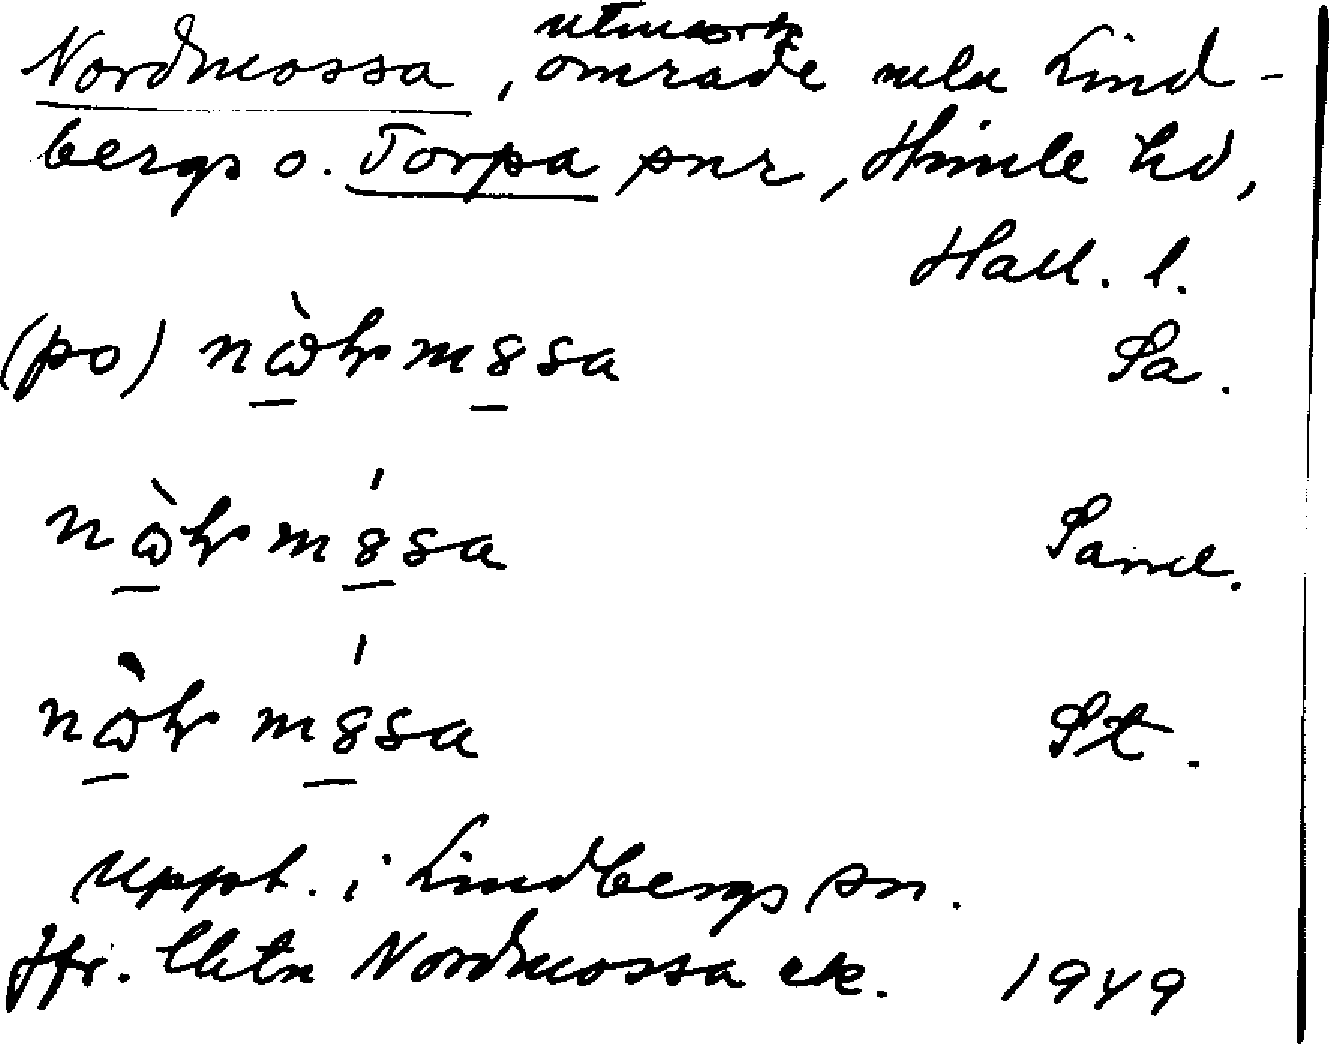 Nordmossa, utmarks
område mln Lind-
bergs o. Torpa snr, Himle hd,
Hall. l.
(po) nὼhrmssa Sa.
nὼhr mśsa Sand.
nὼhr mśsa St.
uppt. i Lindbergs sn.
Jfr. Utm Nordmossa etc. 1949